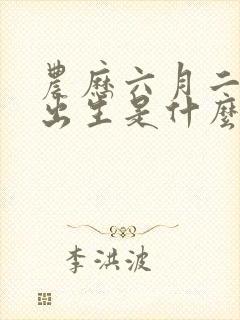 農歷六月二
出生是什麼
李洪波